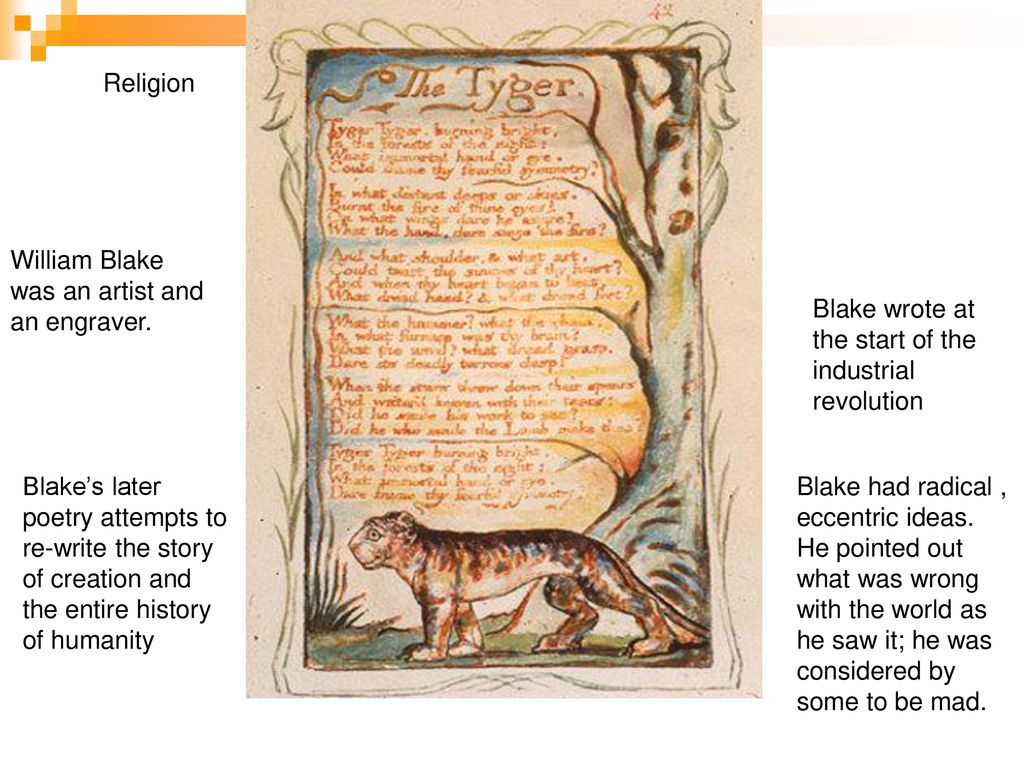 Religion
William Blake
was an artist and
an engraver.
Blake’s later
poetry attempts to
re-write the story
of creation and
the entire history
of humanity
42
The Tyger.
Tyger Tyger. burning bright,
In the forests of the night:
What immortal hand or eye.
Could frame thy fearful symmetry?
In what distant deeps or skies.
Burnt the fire of thine eyes?
On what wings dare he aspire?
What the hand, dare seize the fire?
And what shoulder, & what art,
Could twist the sinews of thy heart?
And when thy heart began to beat,
What dread hand? & what dread feet?
What the hammer? what the chain,
In what furnace was thy brain?
What the anvil? what dread grasp.
Dare its deadly terrors clasp!
When the stars threw down their spears
And water'd heaven with their tears:
Did he smile his work to see?
Did he who made the Lamb make thee?
Tyger Tyger burning bright,
In the forests of the night:
What immortal hand or eye
Dare frame thy fearful symmetry
Blake wrote at
the start of the
industrial
revolution
Blake had radical ,
eccentric ideas.
He pointed out
what was wrong
with the world as
he saw it; he was
considered by
some to be mad.